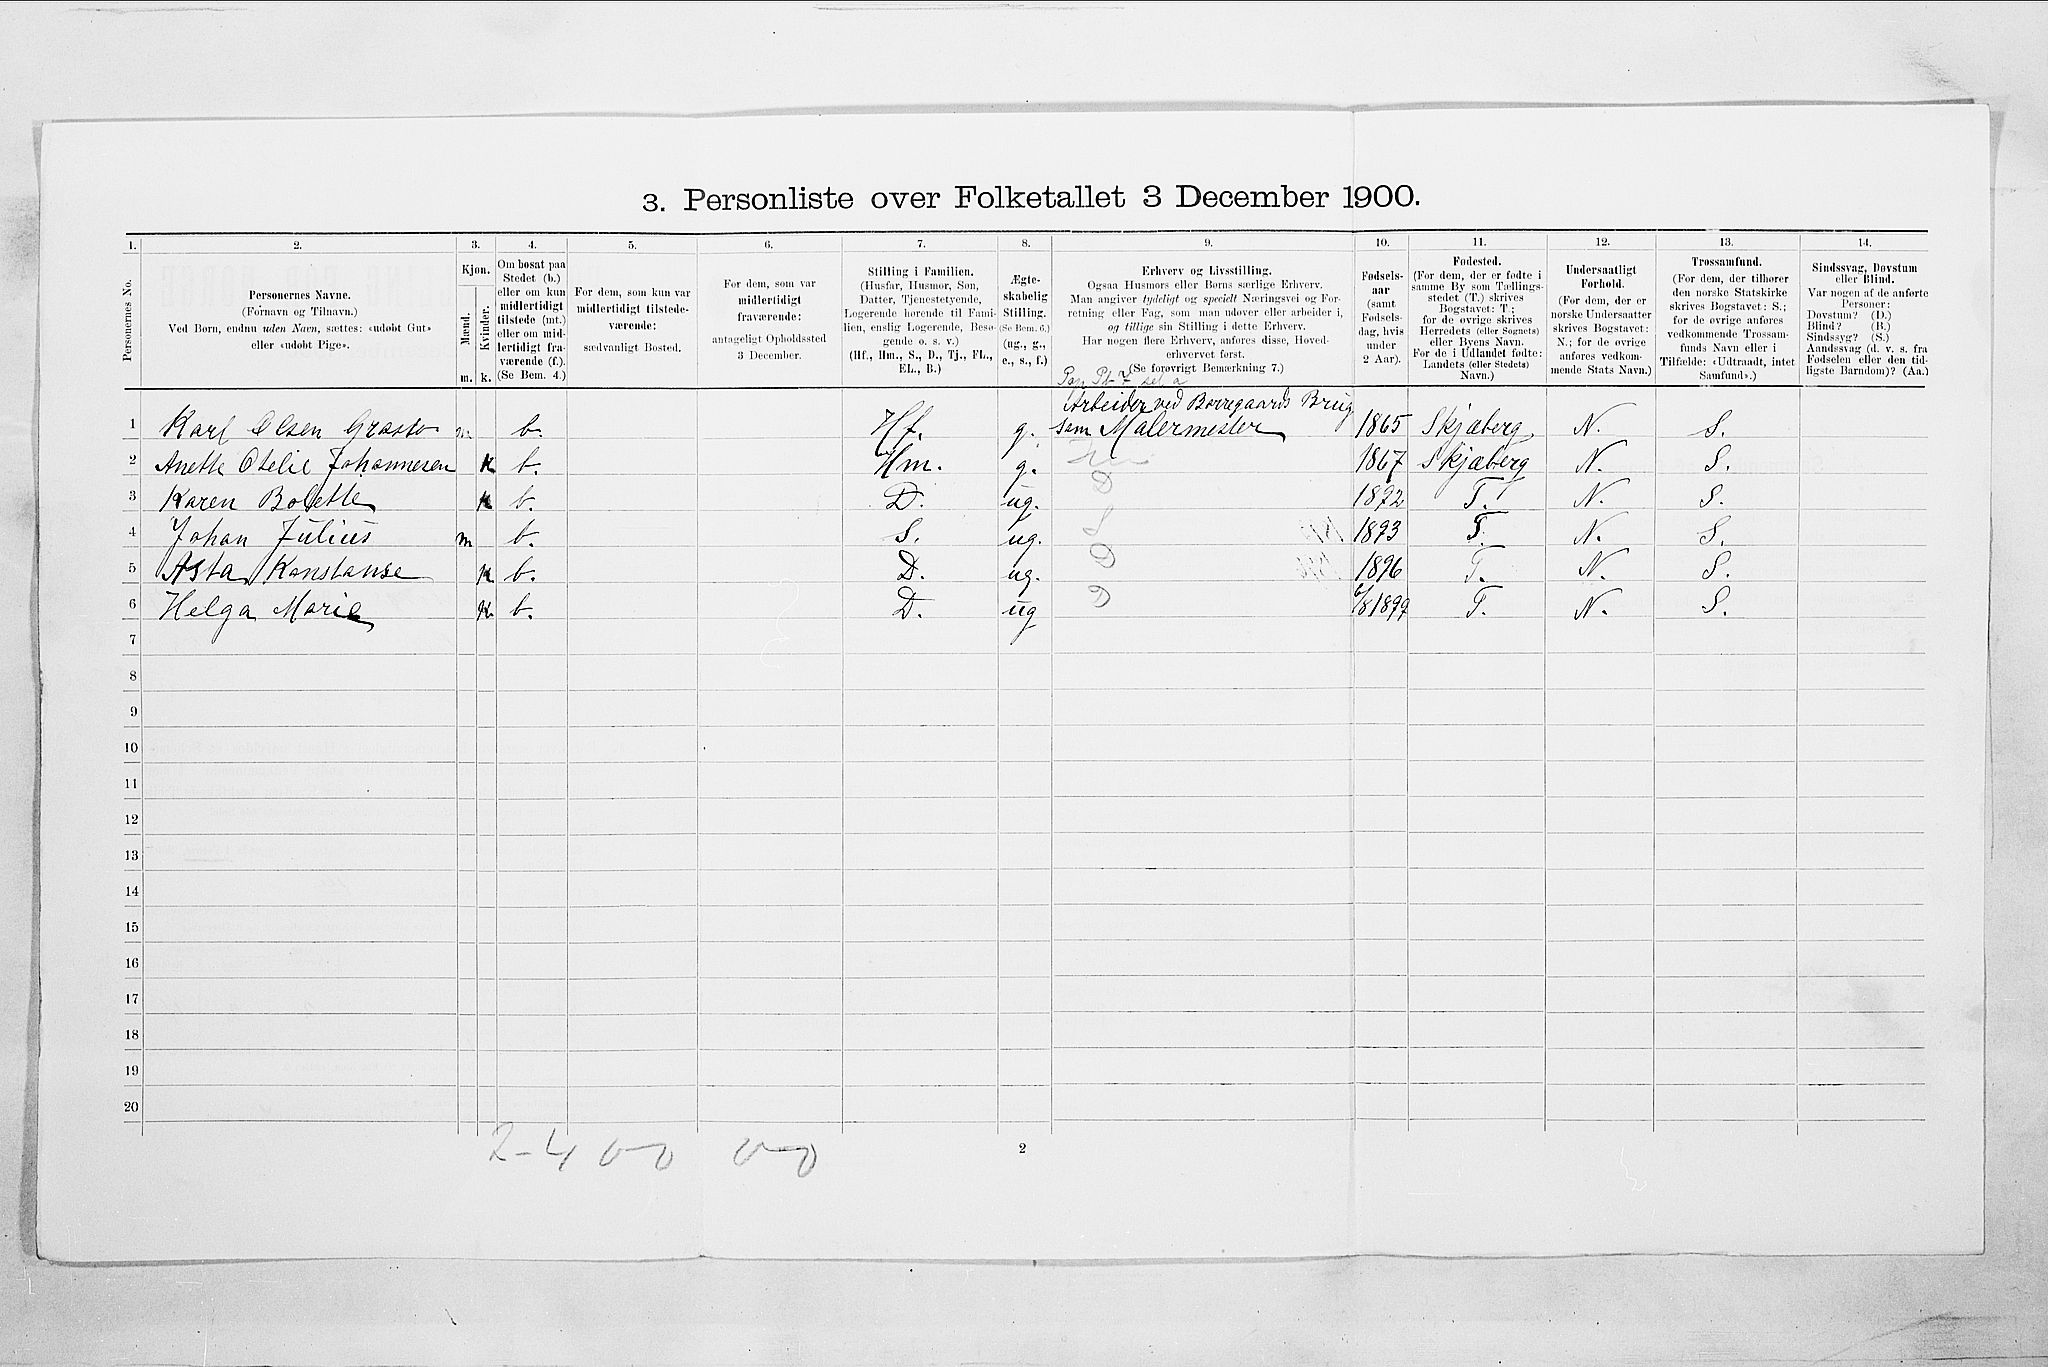 3. Personliste over Folketallet 3 December 1900.
1. 2. 3. 4. 5. 6. 7. 8. 9. 10. 11. 12. 13. 14.
Personernes No.
Personernes Navne.
(Fornavn og Tilnavn.)
Ved Børn, endnu uden Navn, sættes: «udøbt Gut»
eller «udøbt Pige».
Kjøn.
Mænd.
Kvinder.
m. k.
Om bosat paa
Stedet (b.)
eller om kun
midlertidigt
tilstede (mt.)
eller om mid-
lertidigt fra-
værende (f.).
(Se Bem. 4.)
For dem, som kun var
midlertidigt tilstede-
værende:
sædvanligt Bosted.
For dem, som var
midlertidigt
fraværende:
antageligt Opholdssted
3 December.
Stilling i Familien.
(Husfar, Husmor, Søn,
Datter, Tjenestetyende,
Logerende hørende til Fami-
lien, enslig Logerende, Besø-
gende o. s. v.)
(Hf., Hm., S., D., Tj., FL.,
EL., B.)
Ægte-
skabelig
Stilling.
(Se Bem. 6.)
(ug., g.,
e., s., f.)
Erhverv og Livsstilling.
Ogsaa Husmors eller Børns særlige Erhverv.
Man angiver tydeligt og specielt Næringsvei og For-
retning eller Fag, som man udøver eller arbeider i,
og tillige sin Stilling i dette Erhverv.
Har nogen flere Erhverv, anføres disse, Hoved-
erhvervet først.
(Se forøvrigt Bemærkning 7.)
Fødsels-
aar
(samt
Fødsels-
dag, hvis
under
2 Aar).
Fødested.
(For dem, der er fødte i
samme By som Tællings-
stedet (T.) skrives
Bogstavet: T.;
for de øvrige skrives
Herredets (eller Sognets)
eller Byens Navn.
For de i Udlandet fødte:
Landets (eller Stedets)
Navn.)
Undersaatligt
Forhold.
(For dem, der er
norske Undersaatter
skrives Bogstavet:
N.; for de øvrige
anføres vedkom-
mende Stats Navn.)
Trossamfund.
(For dem, der tilhører
den norske Statskirke
skrives Bogstavet: S.;
for de øvrige anføres
vedkommende Trossam-
funds Navn eller i
Tilfælde: «Udtraadt, intet
Samfund».)
Sindssvag, Døvstum
eller Blind.
Var nogen af de anførte
Personer:
Døvstum? (D.)
Blind? (B.)
Sindssyg? (S.)
Aandssvag (d. v. s. fra
Fødselen eller den tid-
ligste Barndom)? (Aa.)
Arbeider ved Borregaards Brug
1 Karl Olsen Grasto m b. Hf. g. som Malermester 1865 Skjæberg N. S.
2 Anette Otelie Johannesen k b. Hm. g. 1867 Skjæberg N. S.
3 Karen Bolette k b. D. ug. D 1892 T. N. S.
4 Johan Julius m b. S. ug. S 1893 T. N. S.
5 Asta Konstanse k b. D. ug. D 1896 T. N. S.
6 Helga Marie k b. D. ug 6/8 1899 T. N. S.
7
8
9
10
11
12
13
14
15
16
17
18
19
20
2-4 0-0 0-0
2